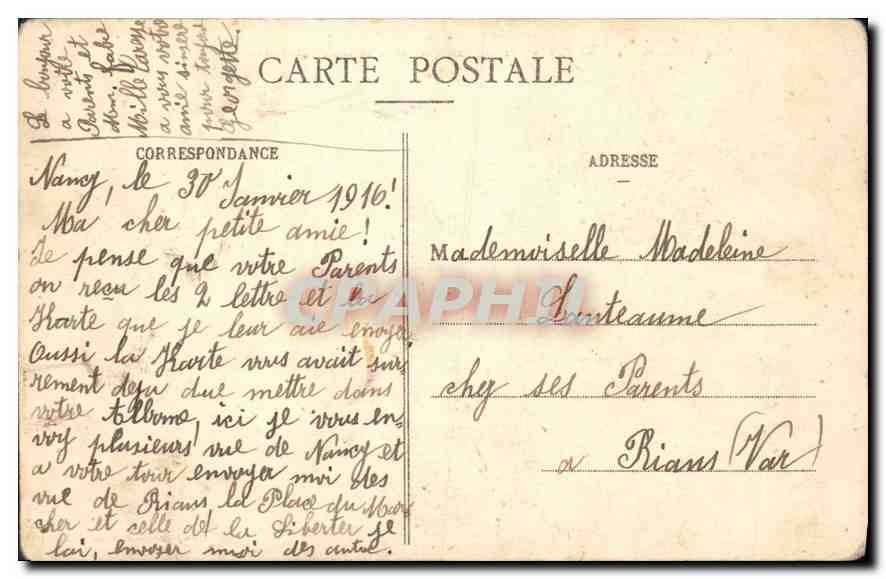 Le bonjour
a votre
Parents et
Mm. Fabre
Mille Caresse
a vous votre
amie sinsere
pour toujour
Georgette.
CARTE POSTALE
CORRESPONDANCE
Nancy, le 30 Janvier 1916!
Ma cher petite amie!
Je pense que votre Parents
on reçu les 2 lettre et la
Karte que je leur aie envoyer
Oussi la Karte vous avait sur-
rement deja due mettre dans
votre Albome, ici je vous en-
voy plusieurs vue de Nancy et
a votre tour envoyer moi des
vue de Rians la Place du Mar
cher et celle de la Liberter je
lai, envoyer moi des autre.
ADRESSE
Mademoiselle Madeleine
Lanteaume
chez ses Parents
a Rians (Var)
CPAPHIL